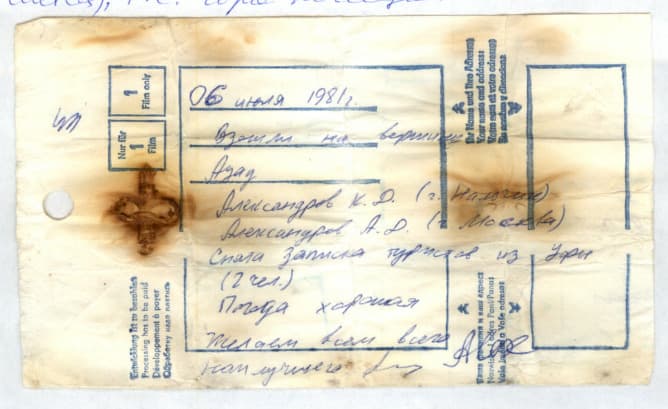 1
Film only
Nur für
1
Film
06 июля 1981г.
Взошли на вершину
Азау
Александров К. Д. (г. Нальчик)
Александров А. Д. (г. Москва)
Снята записка туристов из Уфы
(2 чел.)
Погода хорошая
Желаем всем всего
наилучшего
Ihr Name und Ihre Adresse
Your name and address
Votre nom et votre adresse
Entwicklung ist zu bezahlen
Processing has to be paid
Développement à payer